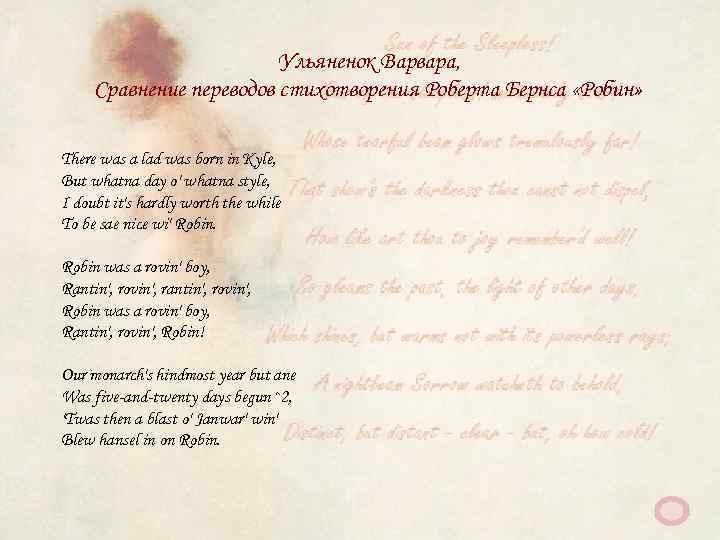 Ульяненок Варвара,
Сравнение переводов стихотворения Роберта Бернса «Робин»
There was a lad was born in Kyle,
But whatna day o' whatna style,
I doubt it's hardly worth the while
To be sae nice wi' Robin.
Robin was a rovin' boy,
Rantin', rovin', rantin', rovin',
Robin was a rovin' boy,
Rantin', rovin', Robin!
Our monarch's hindmost year but ane
Was five-and-twenty days begun^2,
'Twas then a blast o' Janwar' win'
Blew hansel in on Robin.
Sun of the Sleepless!
Whose tearful beam glows tremulously far!
That show'st the darkness thou canst not dispel,
How like art thou to joy remember'd well!
So gleams the past, the light of other days,
Which shines, but warms not with its powerless rays;
A nightbeam Sorrow watcheth to behold,
Distinct, but distant – clear – but, oh how cold!